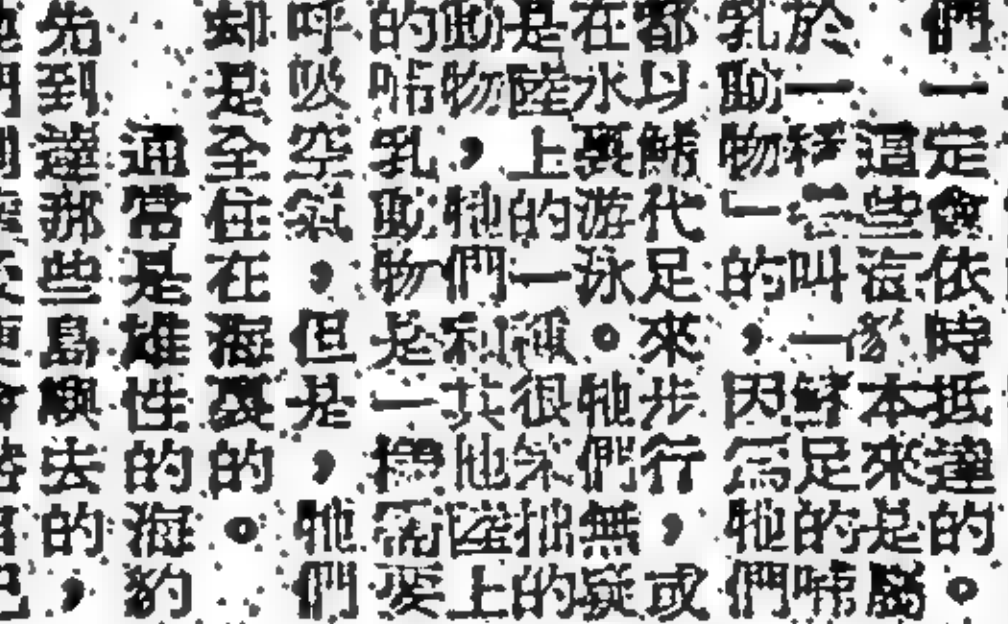 們一定會依時抵達的。
這些海豹本來是屬
於一種叫「鰭足的哺
乳動物」的，因為牠們
都以鰭代足來步行，或
在水裏游泳。牠們無疑
是陸上的一種很笨拙的
動物，牠們和其他陸上
的哺乳動物是一樣需要
呼吸空氣，但是，牠們
却是全住在海裏的。
通常是雄性的海豹
先到達那些島嶼去的，